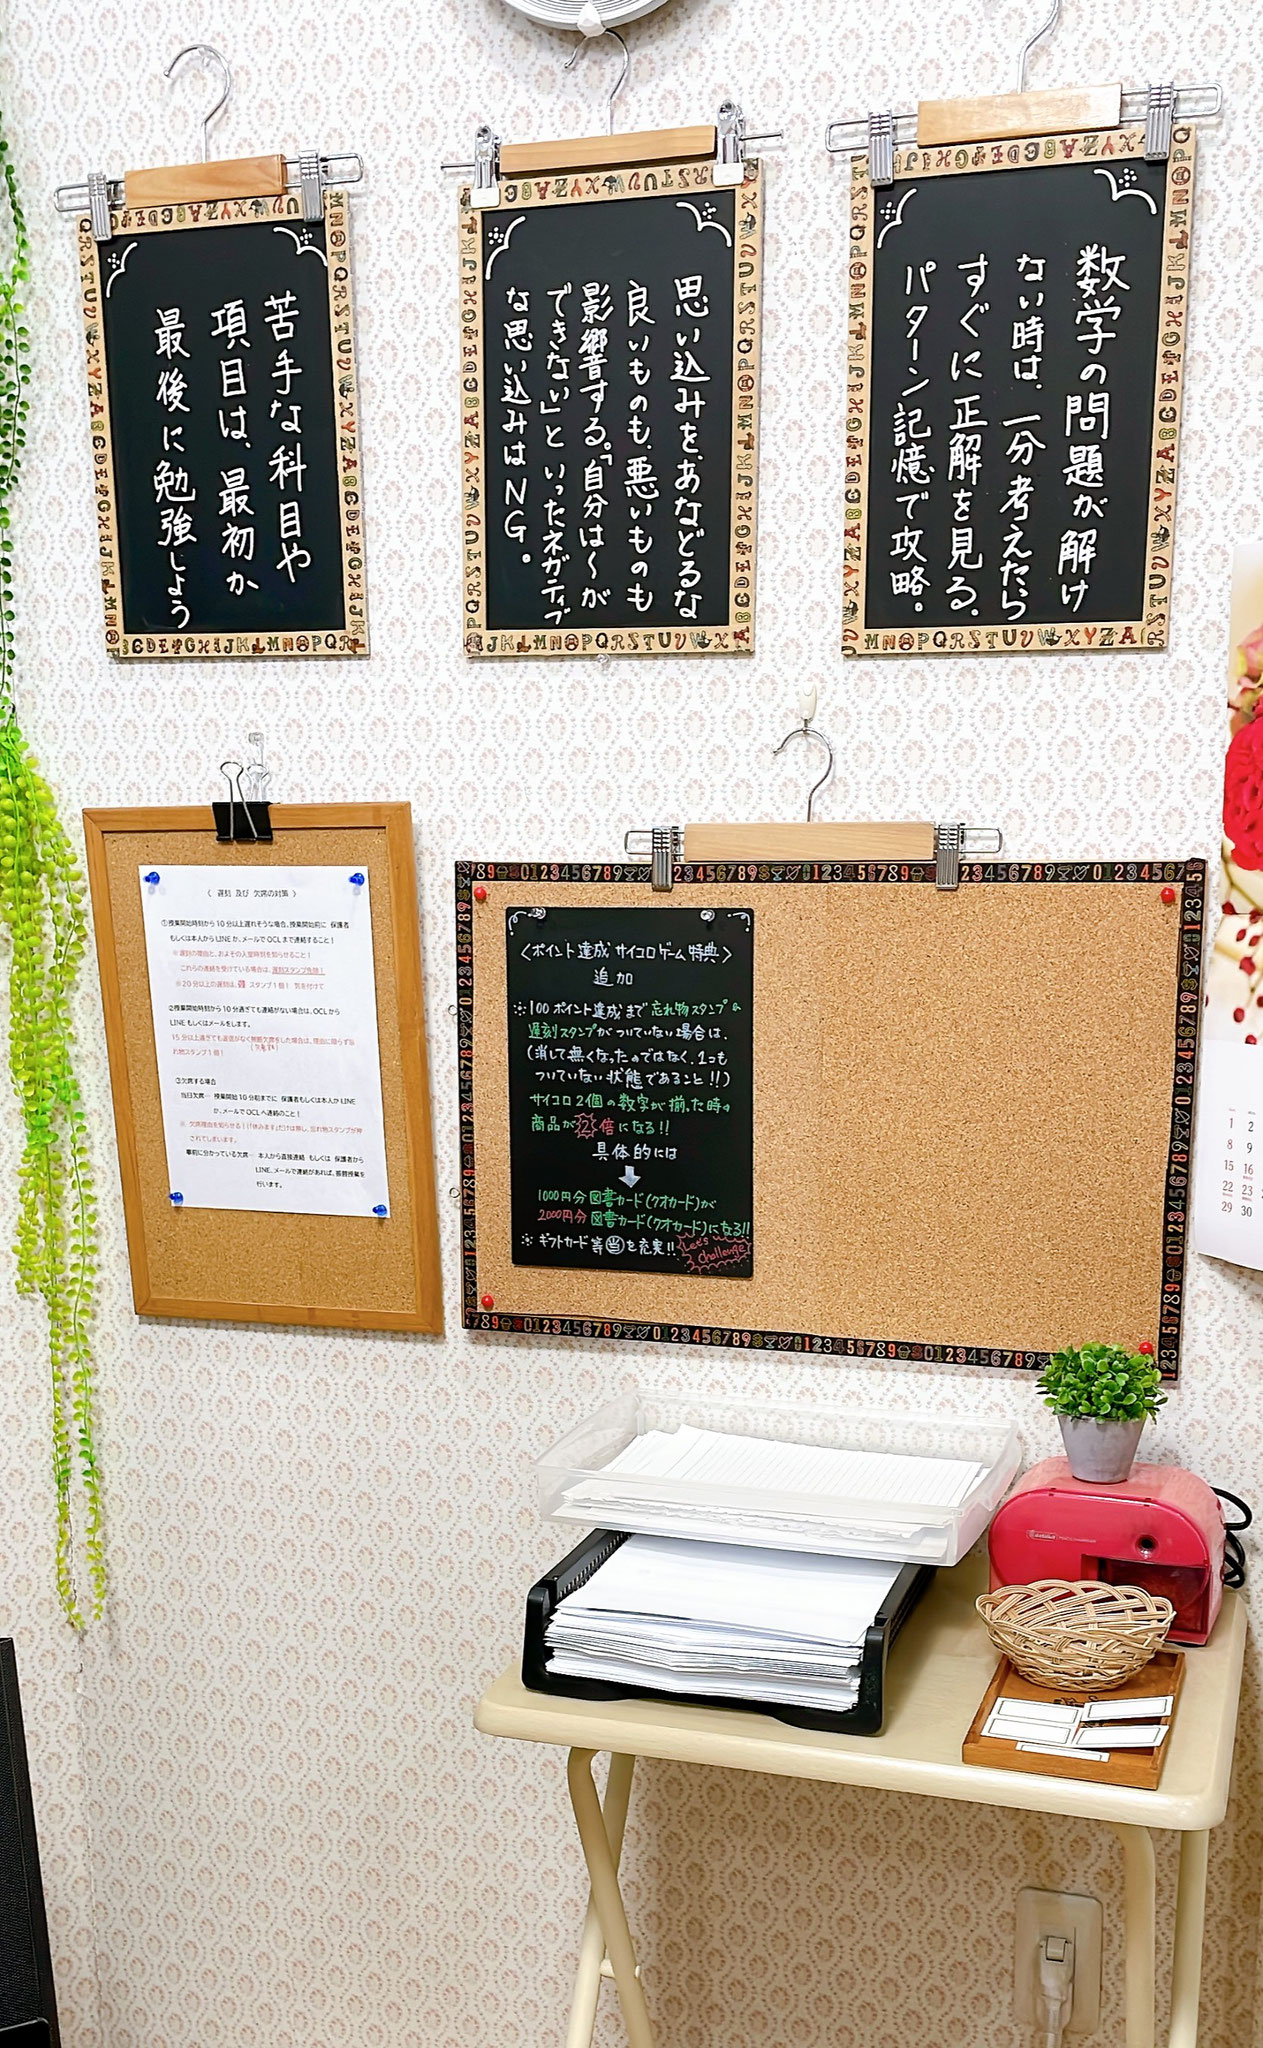 数学の問題が解け
ない時は、一分考えたら
すぐに正解を見る。
パターン記憶で攻略。
思い込みを、あなどるな
良いものも、悪いものも
影響する。「自分は〜が
できない」といったネガティブ
な思い込みはNG。
苦手な科目や
項目は、最初か
最後に勉強しよう
〈 遅刻 及び 欠席の対策 〉
①授業開始時刻から10分以上遅れそうな場合、授業開始前に 保護者
もしくは本人からLINEか、メールでOCLまで連絡すること！
※遅刻の理由と、およその入室時刻を知らせること！
これらの連絡を受けている場合は、遅刻スタンプ免除！
※20分以上の遅刻は、 スタンプ1個！ 気を付けて
②授業開始時刻から10分過ぎても連絡がない場合は、OCLから
LINEもしくはメールをします。
15分以上過ぎても返信がなく無断欠席をした場合は、理由に限らず忘
れ物スタンプ1個！
③欠席する場合
当日欠席… 授業開始10分前までに 保護者もしくは本人がLINE
か、メールでOCLへ連絡のこと！
※ 欠席理由を知らせる！「休みます」だけは無し、忘れ物スタンプが押
されてしまいます。
事前に分かっている欠席… 本人から直接連絡 もしくは 保護者から
LINE、メールで連絡があれば、振替授業を
行います。
〈ポイント達成サイコロゲーム特典〉
追加
※100ポイント達成まで忘れ物スタンプ&
遅刻スタンプがついていない場合は、
(消して無くなったのではなく、1つも
ついていない状態であること!!)
サイコロ2個の数字が揃った時の
商品が2倍になる!!
具体的には
1000円分図書カード(クオカード)が
2000円分図書カード(クオカード)になる!!
※ギフトカード等も充実!!
Let's
challenge
1 2
8 9
15 16
22 23
29 30